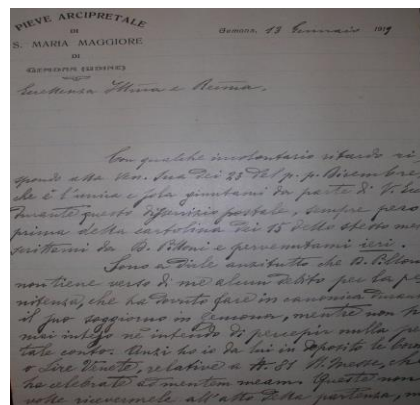 PIEVE ARCIPRETALE
DI
S. MARIA MAGGIORE
DI
GEMONA (UDINE)
Gemona, 13 Gennaio 1919
Eccellenza Ill̃ma e Reṽma,
Con qualche involontario ritardo ri
spondo alla Ven. Sua dei 28 del p. p. Dicembre,
che è l'unica e sola giuntami da parte di V. Ecc.
durante questo disservizio postale, sempre però
prima della cartolina dei 15 dello stesso mese
scrittami da D. Bettoni e pervenutami ieri.
Sono a dirle anzitutto che D. Bettoni
non tiene verso di me alcun debito per la pe
nitenza, che ha dovuto fare in canonica durante
il suo soggiorno in Gemona, mentre non
mai inteso nè intendo di percepir nulla per
tale conto. Anzi ho io da lui in deposito le
o Lire Venete, relative a N. 81 SS. Messe, che
ha celebrate ad mentem meam. Queste non
volle riceverle all'atto della partenza,